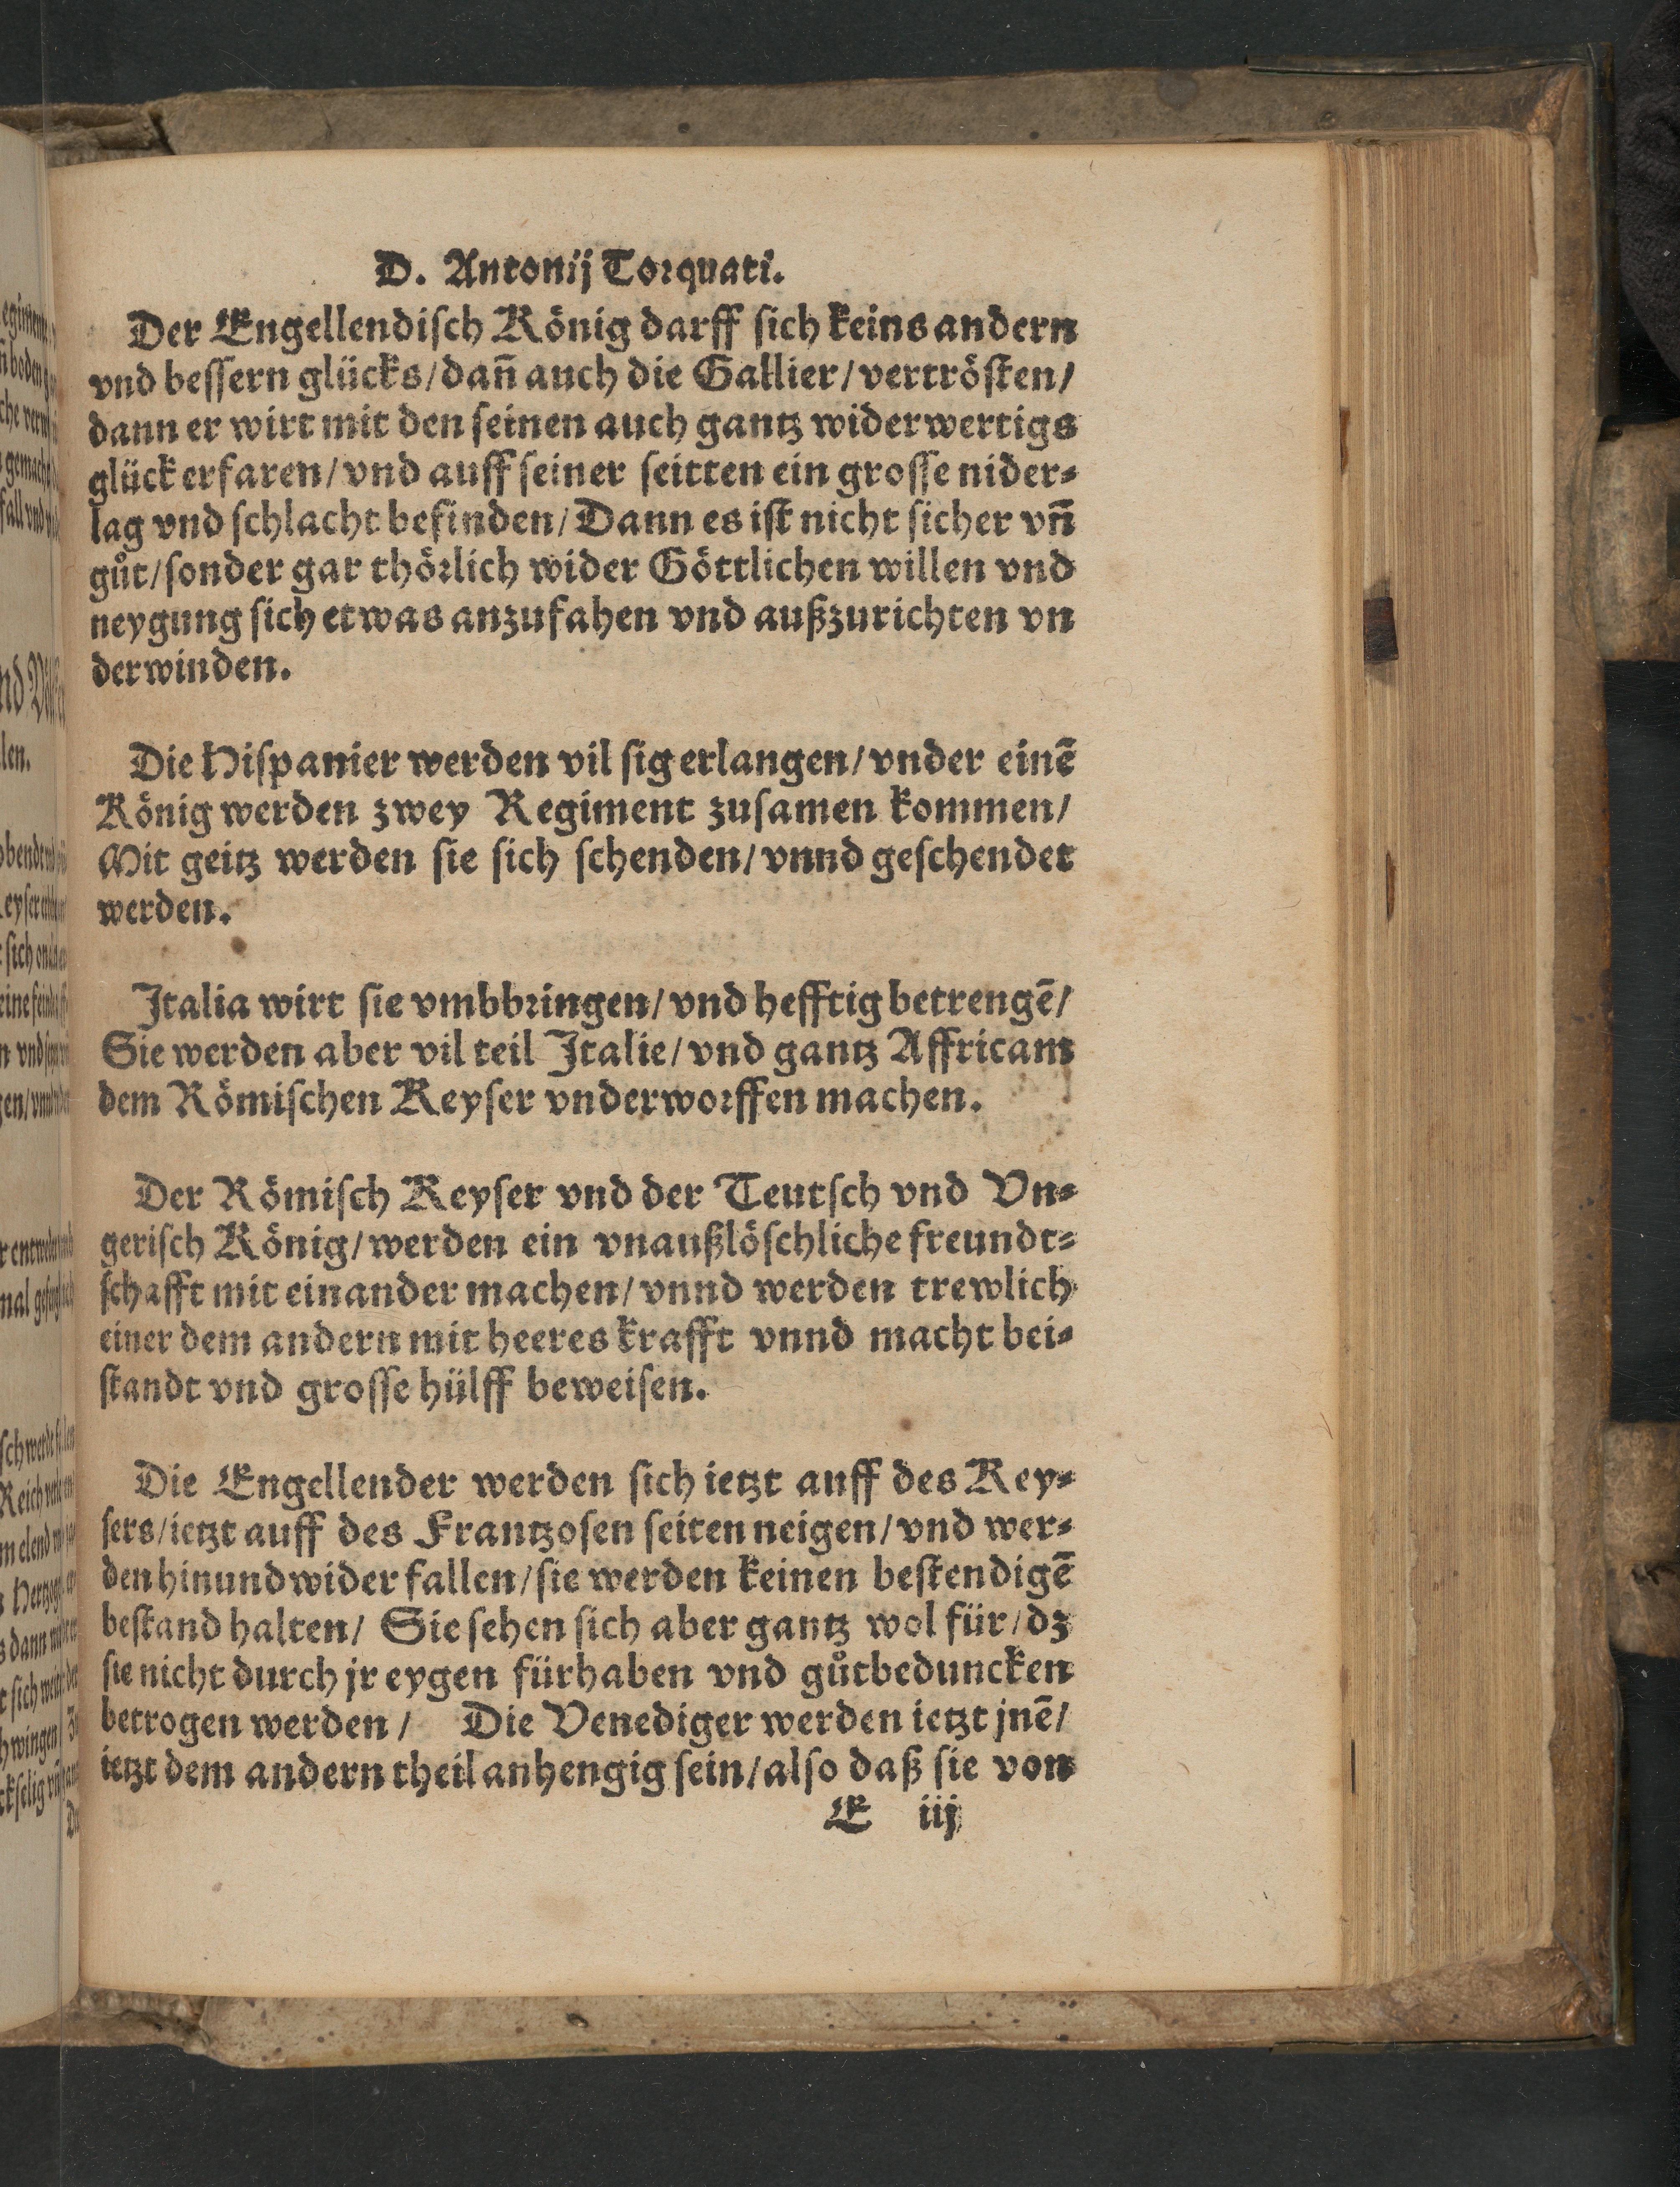 D. Antonij Torquati.
Der Engellendisch König darff sich keins andern
vnd bessern glücks/ dañ auch die Gallier/ vertrösten/
dann er wirt mit den seinen auch gantz widerwertigs
glück erfaren/ vnd auff seiner seitten ein grosse nider⸗
lag vnd schlacht befinden/ Dann es ist nicht sicher vñ
gůt/ sonder gar thörlich wider Göttlichen willen vnd
neygung sich etwas anzufahen vnd außzurichten vn
derwinden.
Die Hispanier werden vil sig erlangen/ vnder einē
König werden zwey Regiment zusamen kommen/
Mit geitz werden sie sich schenden/ vnnd geschendet
werden.
Italia wirt sie vmbbringen/ vnd hefftig betrengē/
Sie werden aber vil teil Italie/ vnd gantz Affricam
dem Römischen Keyser vnderworffen machen.
Der Römisch Keyser vnd der Teutsch vnd Vn⸗
gerisch König/ werden ein vnaußlöschliche freundt⸗
schafft mit einander machen/ vnnd werden trewlich
einer dem andern mit heeres krafft vnnd macht bei⸗
standt vnd grosse hülff beweisen.
Die Engellender werden sich ietzt auff des Key⸗
sers/ ietzt auff des Frantzosen seiten neigen/ vnd wer⸗
den hinundwider fallen/ sie werden keinen bestendigē
bestand halten/ Sie sehen sich aber gantz wol für/ dz
sie nicht durch jr eygen fürhaben vnd gůtbeduncken
betrogen werden/ Die Venediger werden ietzt jnē/
ietzt dem andern theil anhengig sein/ also daß sie von
E iij